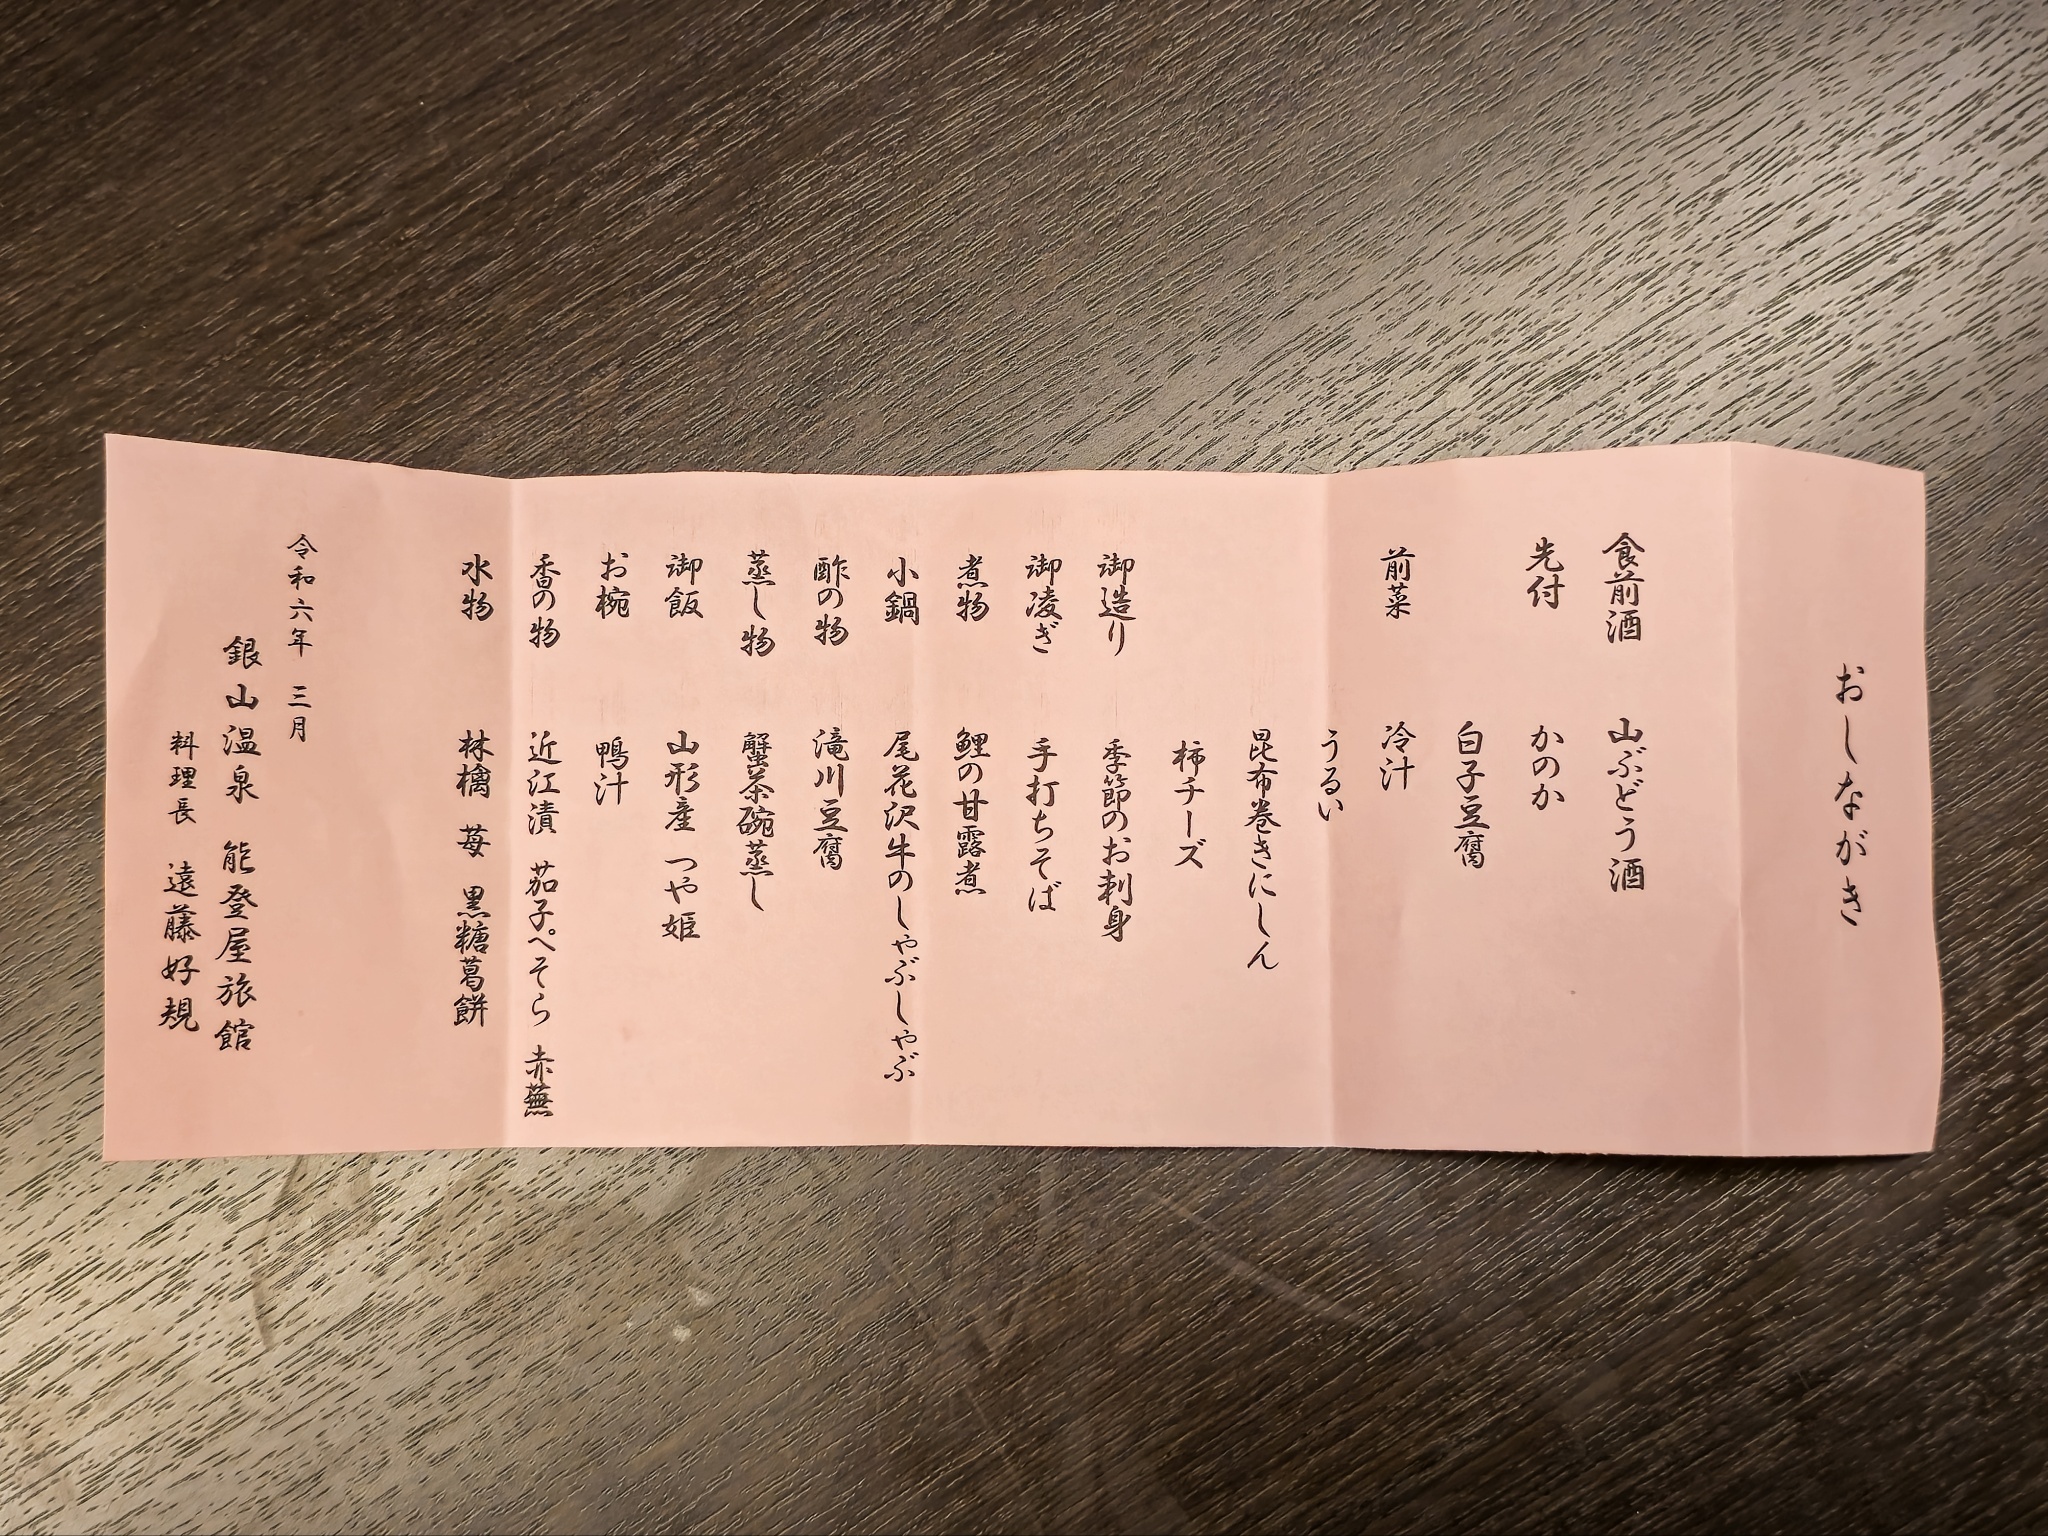 おしながき
食前酒 山ぶどう酒
先付 かのか
白子豆腐
前菜 冷汁
うるい
昆布巻きにしん
柿チーズ
御造り 季節のお刺身
御凌ぎ 手打ちそば
煮物 鯉の甘露煮
小鍋 尾花沢牛のしゃぶしゃぶ
酢の物 滝川豆腐
蒸し物 蟹茶碗蒸し
御飯 山形産 つや姫
お椀 鴨汁
香の物 近江漬 茄子ぺそら 赤蕪
水物 林檎 苺 黒糖葛餅
令和六年 三月
銀山温泉 能登屋旅館
料理長 遠藤好規